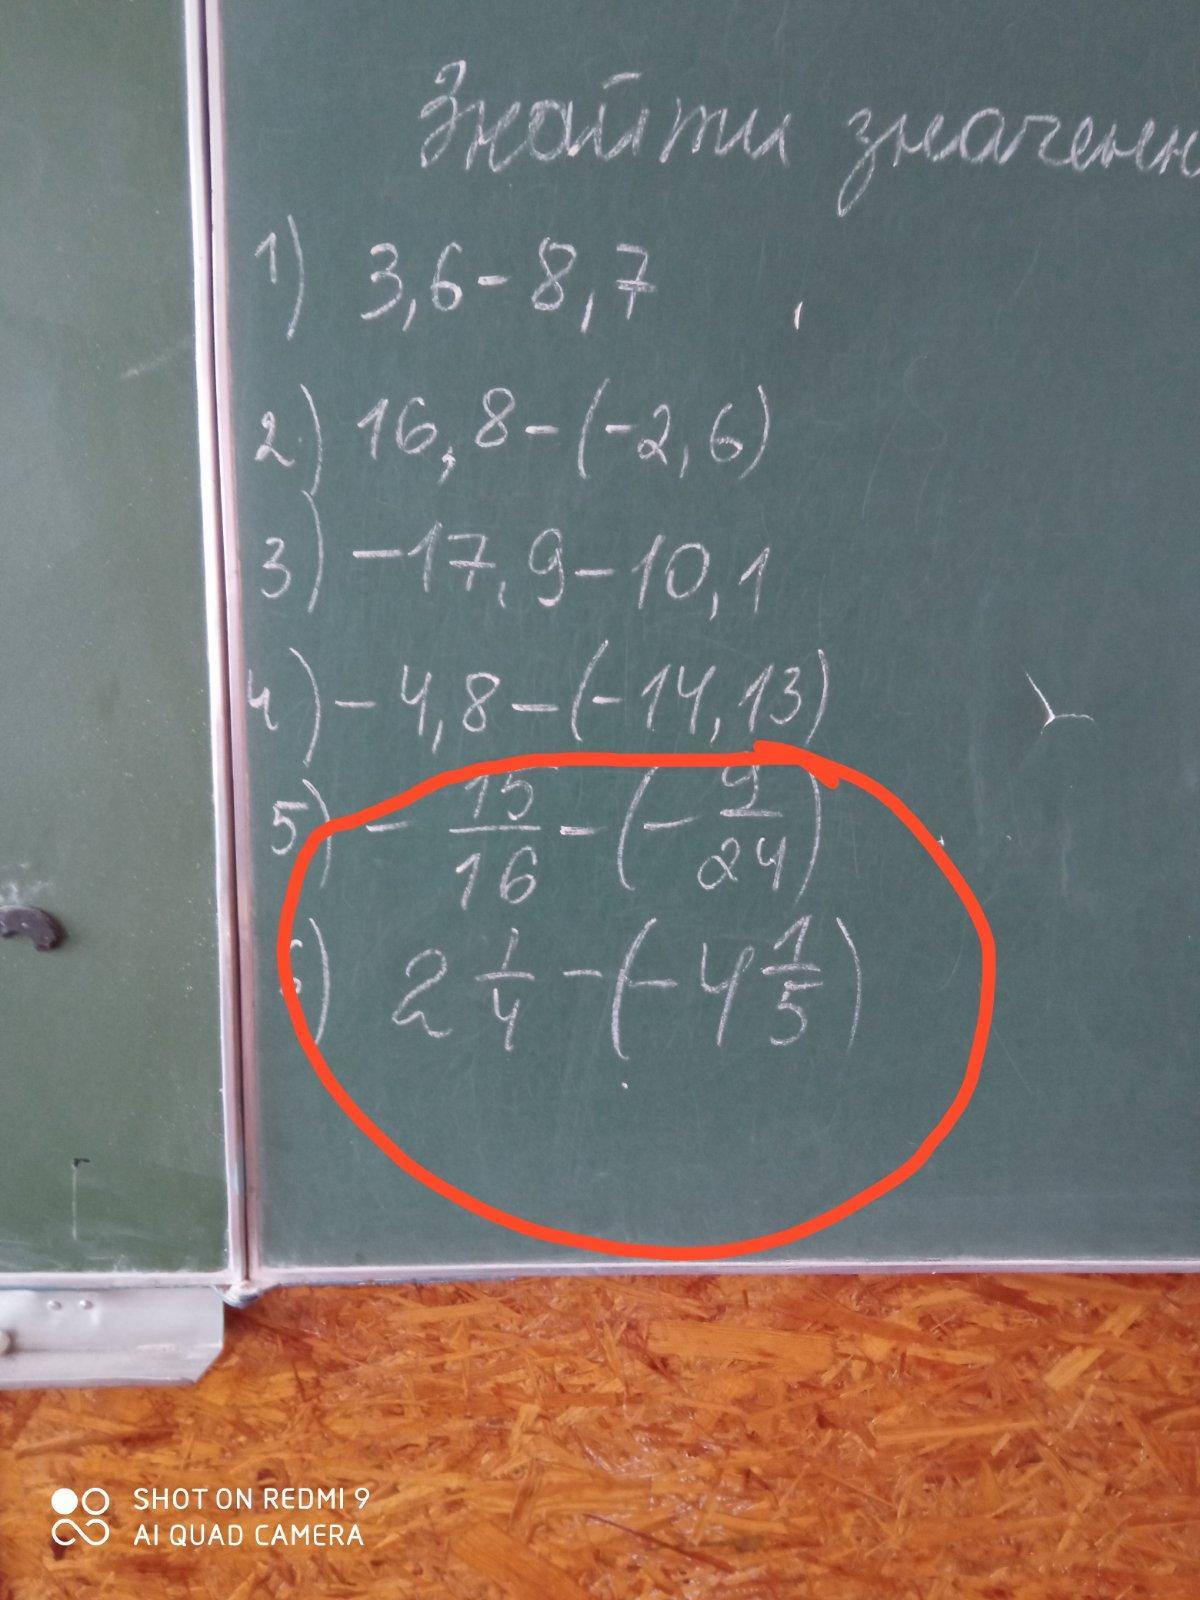 Знайти значенн
1) 3,6-8,7
2) 16,8-(-2,6)
3) -17,9-10,1
4) -4,8-(-14,13)
5) - 15/16 - (- 9/24)
6) 2 1/4 - (-4 1/5)
SHOT ON REDMI 9
AI QUAD CAMERA